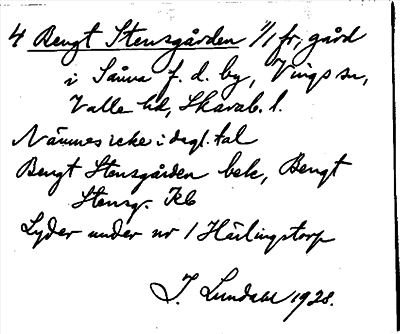 4 Bengt Stensgården 1/1 fr, gård
i Såna f. d. by, Vings sn,
Valle hd, Skarab. l.
Nämnes icke i dagl. tal
Bengt Stensgården bek, Bengt
Stensg. Kb
Lyder under nr 1 Härlingstorp
I. Lundahl 1928.